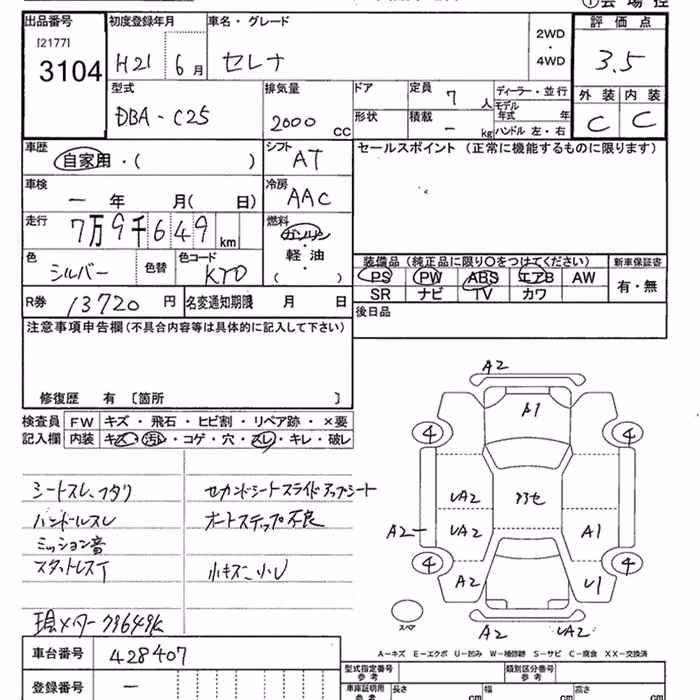 ①会場控
出品番号 初度登録年月 車名・グレード 2WD・4WD 評価点
[2177]
3104 H21 6月 セレナ 3.5
型式 排気量 ドア 定員 7人 ディーラー・並行 外装 内装
DBA-C25 2000cc 形状 積載 - kg モデル年式 年 C C
ハンドル 左・右
車歴 シフト セールスポイント (正常に機能するものに限ります)
自家用・( ) AT
車検 冷房
- 年 月( 日) AAC
走行 燃料
7万9千649km ガソリン・軽油・( )
色 色替 色コード 装備品 (純正品に限り〇をつけてください) 新車保証書
シルバー KY0 PS PW ABS エアB AW 有・無
SR ナビ TV カワ
R券 13720円 名変通知期限 月 日 後日品
注意事項申告欄(不具合内容等は具体的に記入して下さい)
修復歴 有 [箇所 ]
検査員 FW キズ・飛石・ヒビ割・リペア跡・×要
記入欄 内装 キズ・汚レ・コゲ・穴・スレ・キレ・破レ
シートスレ、フタリ セカンドシートスライドアップシート
ハンドルスレ オートステップ不良
ミッション音
スタットレスT 小キズ・小U
現メーター 79649K
A2
A1
4 4
UA2
UA2
A2- A1
4 4
A2 U1
スペア A2 UA2
A-キズ E-エクボ U-凹み W-補修跡 S-サビ C-腐食 XX-交換済
車台番号 428407 型式指定番号 参考 類別区分番号 参考
登録番号 - 車庫証明用 参考 長さ cm 幅 cm 高さ cm